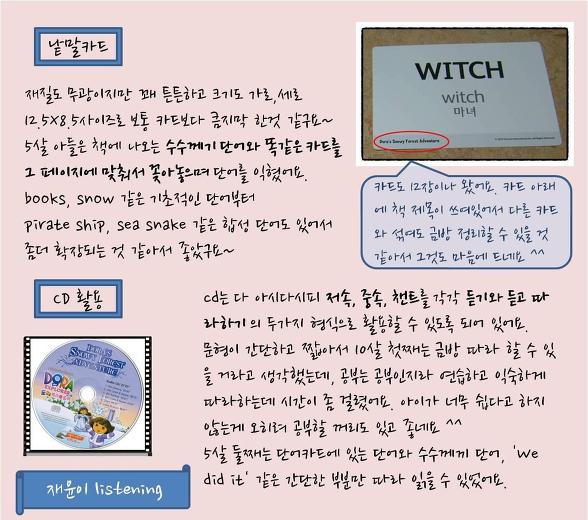 낱말카드
재질도 무광이지만 꽤 튼튼하고 크기도 가로,세로
12.5X8.5사이즈로 보통 카드보다 큼지막 한것 같구요~
5살 아들은 책에 나오는 수수께기 단어와 똑같은 카드를
그 페이지에 맞춰서 꽂아놓으며 단어를 익혔어요.
books, snow 같은 기초적인 단어부터
pirate ship, sea snake 같은 합성 단어도 있어서
좀더 확장되는 것 같아서 좋았구요~
WITCH
witch
마녀
Dora's Snowy Forest Adventure
카드도 12장이나 왔어요. 카드 아래
에 책 제목이 쓰여있어서 다른 카드
와 섞여도 금방 정리할 수 있을 것
같아서 그것도 마음에 드네요 ^^
CD 활용
cd는 다 아시다시피 저속, 중속, 챈트를 각각 듣기와 듣고 따
라하기 의 두가지 형식으로 활용할 수 있도록 되어 있어요.
문형이 간단하고 짧아서 10살 첫째는 금방 따라 할 수 있
을 거라고 생각했는데, 공부는 공부인지라 연습하고 익숙하게
따라하는데 시간이 좀 걸렸어요. 아이가 너무 쉽다고 하지
않는게 오히려 공부할 꺼리도 있고 좋네요 ^^
5살 둘째는 단어카드에 있는 단어와 수수께끼 단어, 'We
did it' 같은 간단한 부분만 따라 읽을 수 있었어요.
DORA'S
SNOWY FOREST
ADVENTURE
DORA
EXPLORER
재윤이 listening